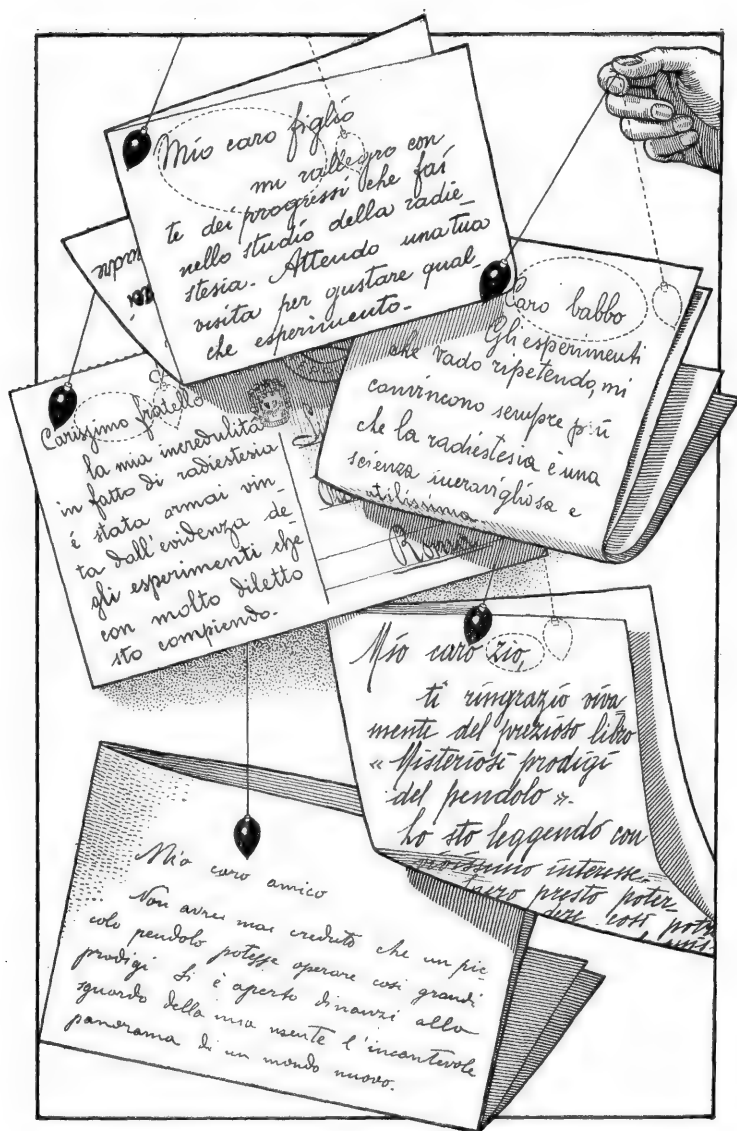 Mio caro figlio
mi rallegro con
te dei progressi che fai
nello studio della radie-
stesia. Attendo una tua
visita per gustare qual-
che esperimento.
Caro babbo
Gli esperimenti
che vado ripetendo, mi
convincono sempre più
che la radiestesia è una
scienza meravigliosa e
utilissima
Carissimo fratello
la mia incredulità
in fatto di radiestesia
è stata ormai vin-
ta dall'evidenza de-
gli esperimenti che
con molto diletto
sto compiendo.
Roma
Mio caro zio,
ti ringrazio viva
mente del prezioso libro
« Misteriosi prodigi
del pendolo ».
Lo sto leggendo con
vivissimo interesse
pero presto poter-
così
Mio caro amico
Non avrei mai creduto che un pic-
colo pendolo potesse operare così grandi
prodigi Si è aperto dinanzi allo
sguardo della mia mente l'incantevole
panorama di un mondo nuovo.